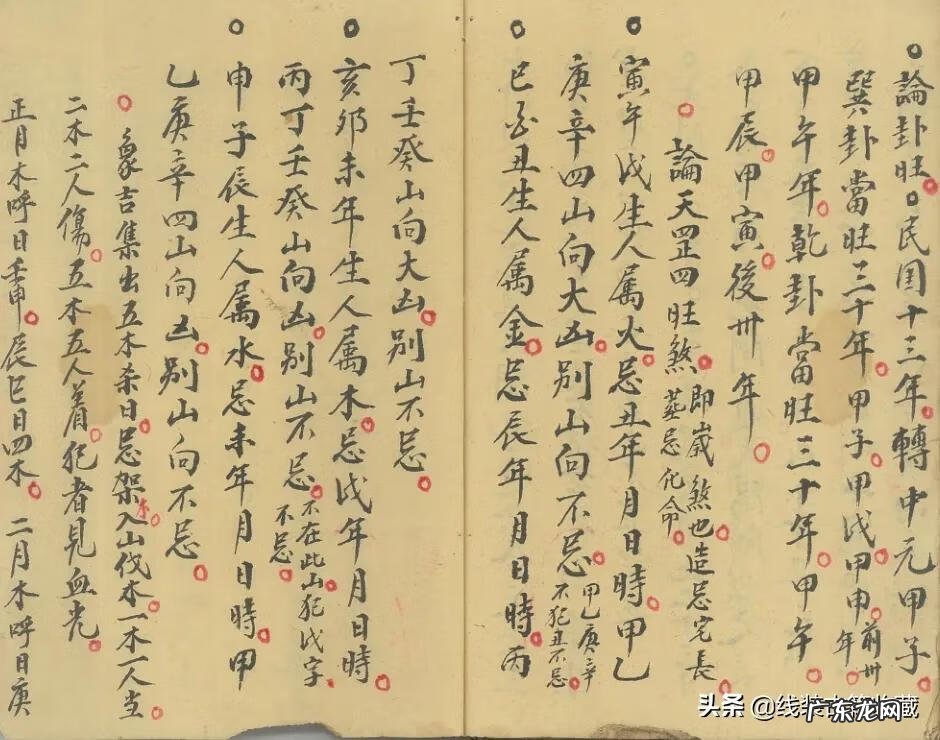 論卦旺。民国十三年轉中元甲子
巽卦當旺三十年甲子甲戌甲申前卅年
甲午年乾卦當旺三十年甲午
甲辰甲寅後卅年
論天罡四旺煞即歲煞也造忌宅長葬忌化命
寅午戌生人属火忌丑年月日時甲乙
庚辛四山向大凶别山向不忌甲乙庚辛不犯丑不忌
巳酉丑生人属金忌辰年月日時丙
丁壬癸山向大凶别山不忌
亥卯未年生人属木忌戌年月日時
丙丁壬癸山向凶别山不忌不在此山犯戌字不忌
申子辰生人属水忌未年月日時甲
乙庚辛四山向凶别山向不忌
象吉集出五木杀日忌架木入山伐木一木一人当
二木二人傷五木五人着犯者見血光
正月木呼日壬申辰巳日四木 二月木呼日庚
头条 @线装古籍收藏
广东龙网